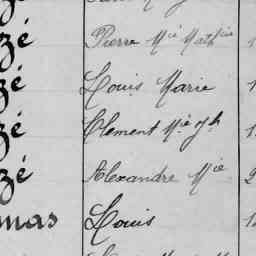 zé Pierre Mie Mathieu 1
zé Louis Marie 1
zé Clement Mie Jh 1
zé Alexandre Mie 2
mas Louis 1